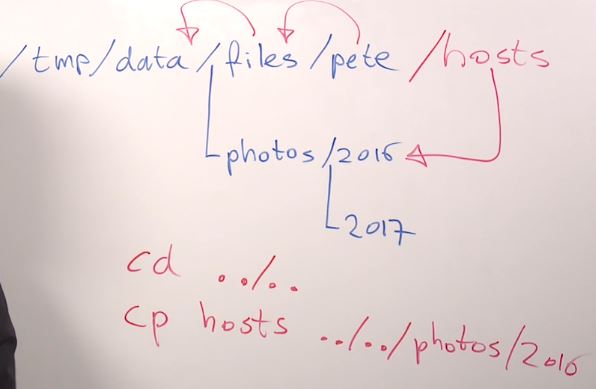 /tmp/data/files/pete/hosts
photos/2016
2017
cd ../..
cp hosts ../../photos/2016